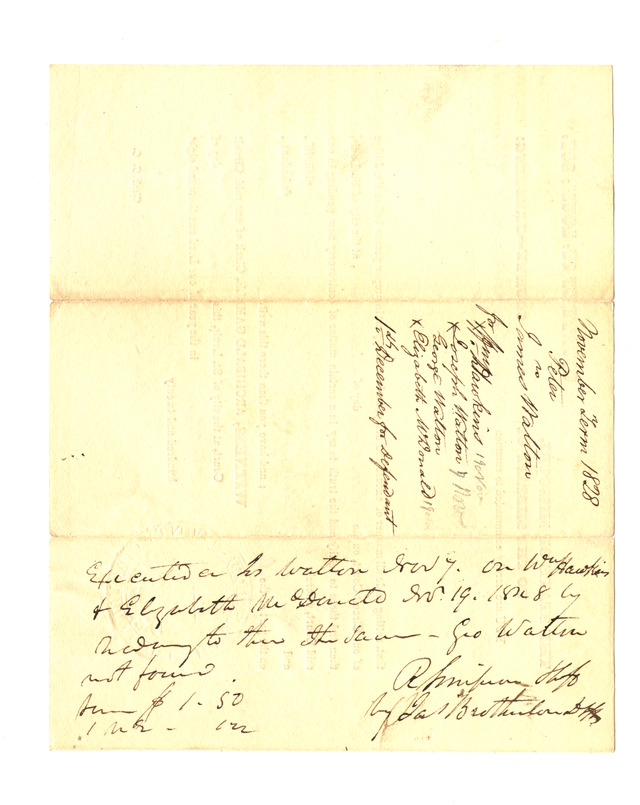 November Term 1828
Peter
vs
James Walton
for
Wm. Hawkins 19 Nov
X Joseph Walton 7 Nov
George Walton
X Elizabeth McDonald 19
1st December for Defendant
Executed on Js Walton Nov 7. on Wm Hawkins
& Elizabeth McDonald Nov. 19. 1828 by
Reading to them the Same - Geo Walton
not found
$ 1 - 50
R Simpson Shff
by Jas Brotherton D Shff